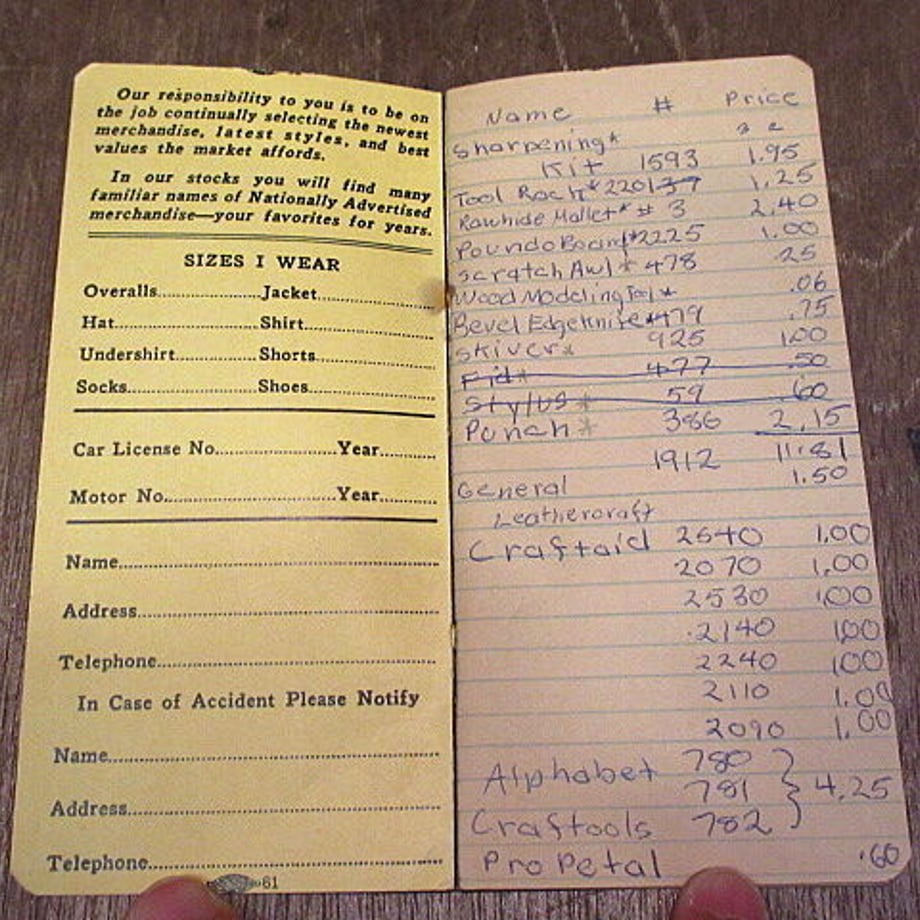 Our responsibility to you is to be on
the job continually selecting the newest
merchandise, latest styles, and best
values the market affords.
In our stocks you will find many
familiar names of Nationally Advertised
merchandise—your favorites for years.
SIZES I WEAR
Overalls..................Jacket....................
Hat..........................Shirt......................
Undershirt..............Shorts....................
Socks.......................Shoes....................
Car License No.......................Year...........
Motor No.................................Year...........
Name..........................................................
Address......................................................
Telephone..................................................
In Case of Accident Please Notify
Name..........................................................
Address......................................................
Telephone..................................................
61
Name # Price
Sharpening*
Kit 1593 1.95
Tool Rack* 2201-37 1.25
Rawhide Mallet* # 3 2.40
Poundo Board* 2225 1.00
Scratch Awl * 478 .25
Wood Modeling Tool * .06
Bevel Edge Knife * 479 .75
Skiver* 925 1.00
Fid* 477 .50
Stylus * 59 .60
Punch * 386 2.15
1912 11.81
General 1.50
Leathercraft
Craftaid 2540 1.00
2070 1.00
2530 1.00
2140 1.00
2240 1.00
2110 1.00
2090 1.00
Alphabet 780
781 } 4.25
Craftools 782
Pro Petal .60